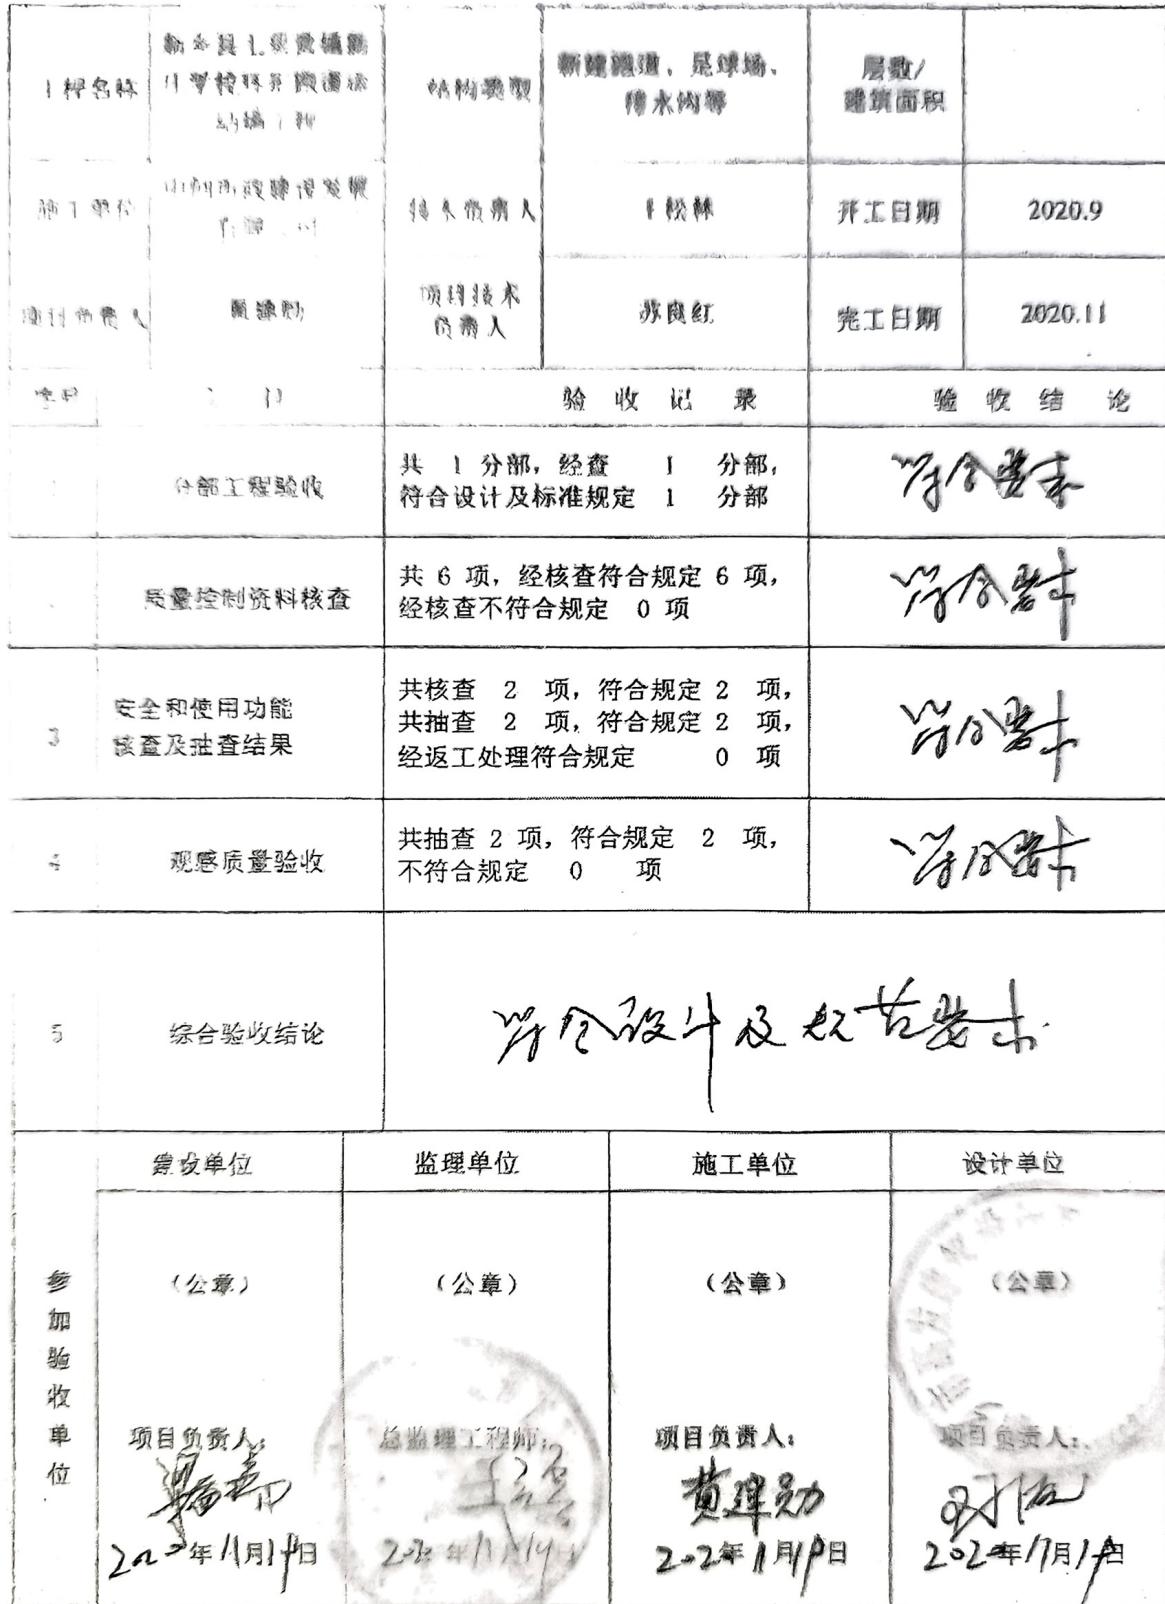 工程名称
结构类型
新建跑道、足球场、
排水沟等
层数/
建筑面积
施工单位
技术负责人
开工日期
2020.9
项目负责人
黄建勋
项目技术
负责人
苏良红
完工日期
2020.11
序号
验 收 记 录
验 收 结 论
分部工程验收
共 1 分部，经查 1 分部，
符合设计及标准规定 1 分部
符合要求
质量控制资料核查
共 6 项，经核查符合规定 6 项，
经核查不符合规定 0 项
符合要求
3
安全和使用功能
核查及抽查结果
共核查 2 项，符合规定 2 项，
共抽查 2 项，符合规定 2 项，
经返工处理符合规定 0 项
符合要求
4
观感质量验收
共抽查 2 项，符合规定 2 项，
不符合规定 0 项
符合要求
5
综合验收结论
符合设计及规范要求
参加验收单位
建设单位
监理单位
施工单位
设计单位
（公章）
（公章）
（公章）
（公章）
项目负责人：
总监理工程师：
项目负责人：
项目负责人：
黄建勋
2020年11月19日
2020年11月19日
2020年11月19日
2020年11月19日